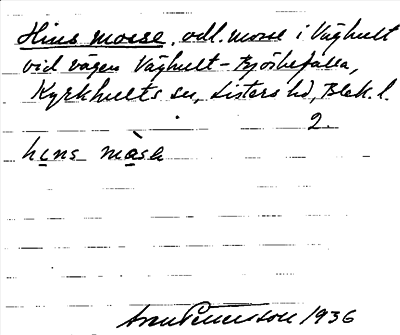 Hins mosse, odl. mosse i Vághult
vid vägen Vághult - Björkefalla,
Kyrkhults sn, Listers hd, Blek. l.
2.
hins màsa
Sven Pettersson 1936